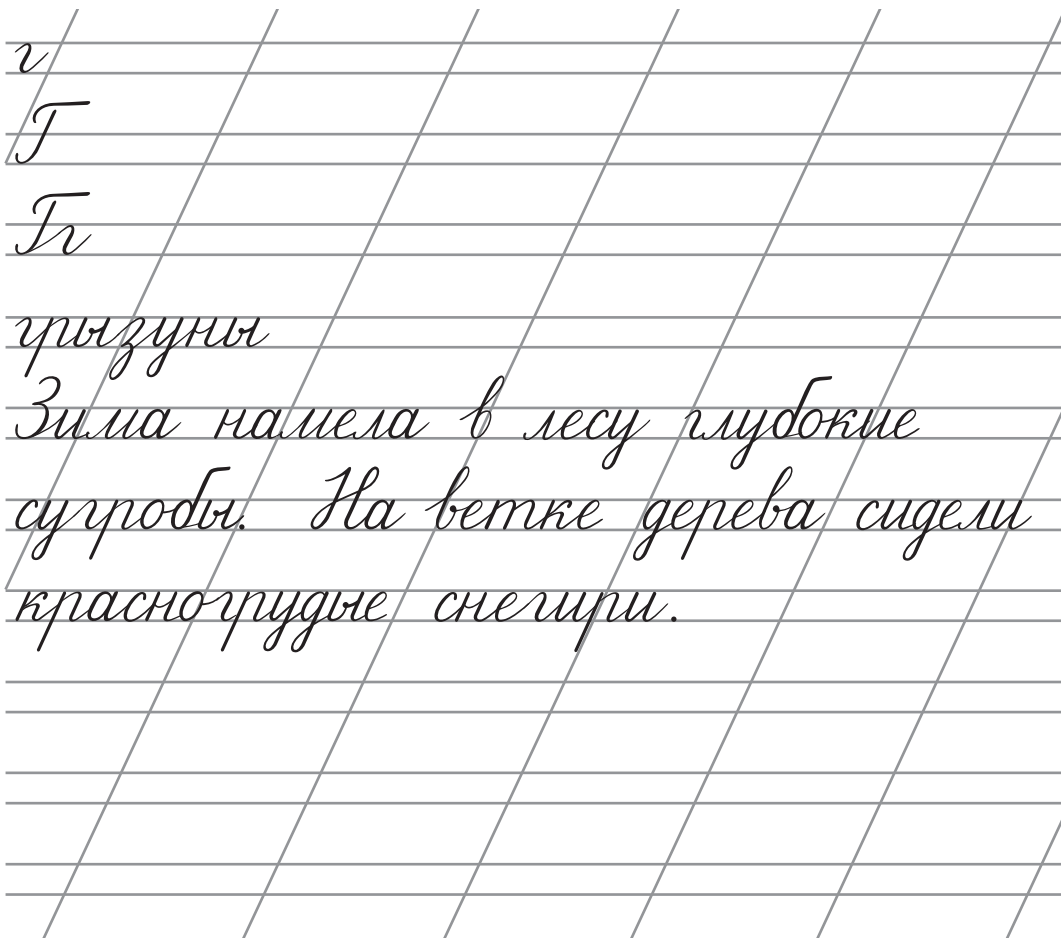 г
Г
Гг
грызуны
Зима намела в лесу глубокие
сугробы. На ветке дерева сидели
красногрудые снегири.